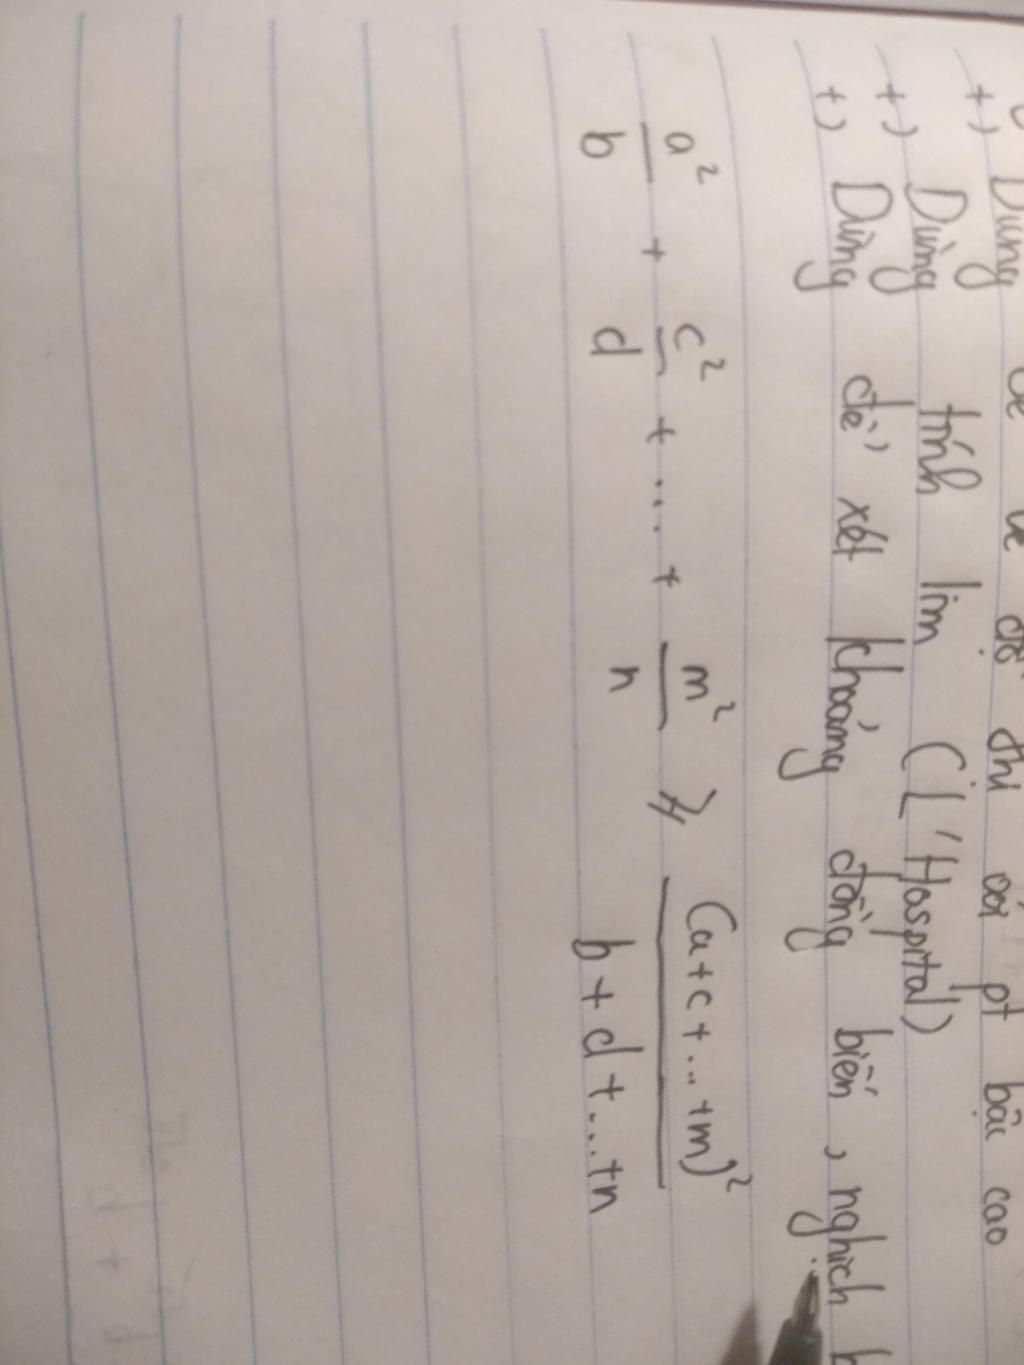 +) Dùng để vẽ đồ thị với pt bậc cao
+) Dùng tính lim (L'Hospital)
+) Dùng để xét khoảng đồng biến, nghịch b
a²/b + c²/d + ... + m²/n ≥ (a+c+...+m)²/b+d+...+n